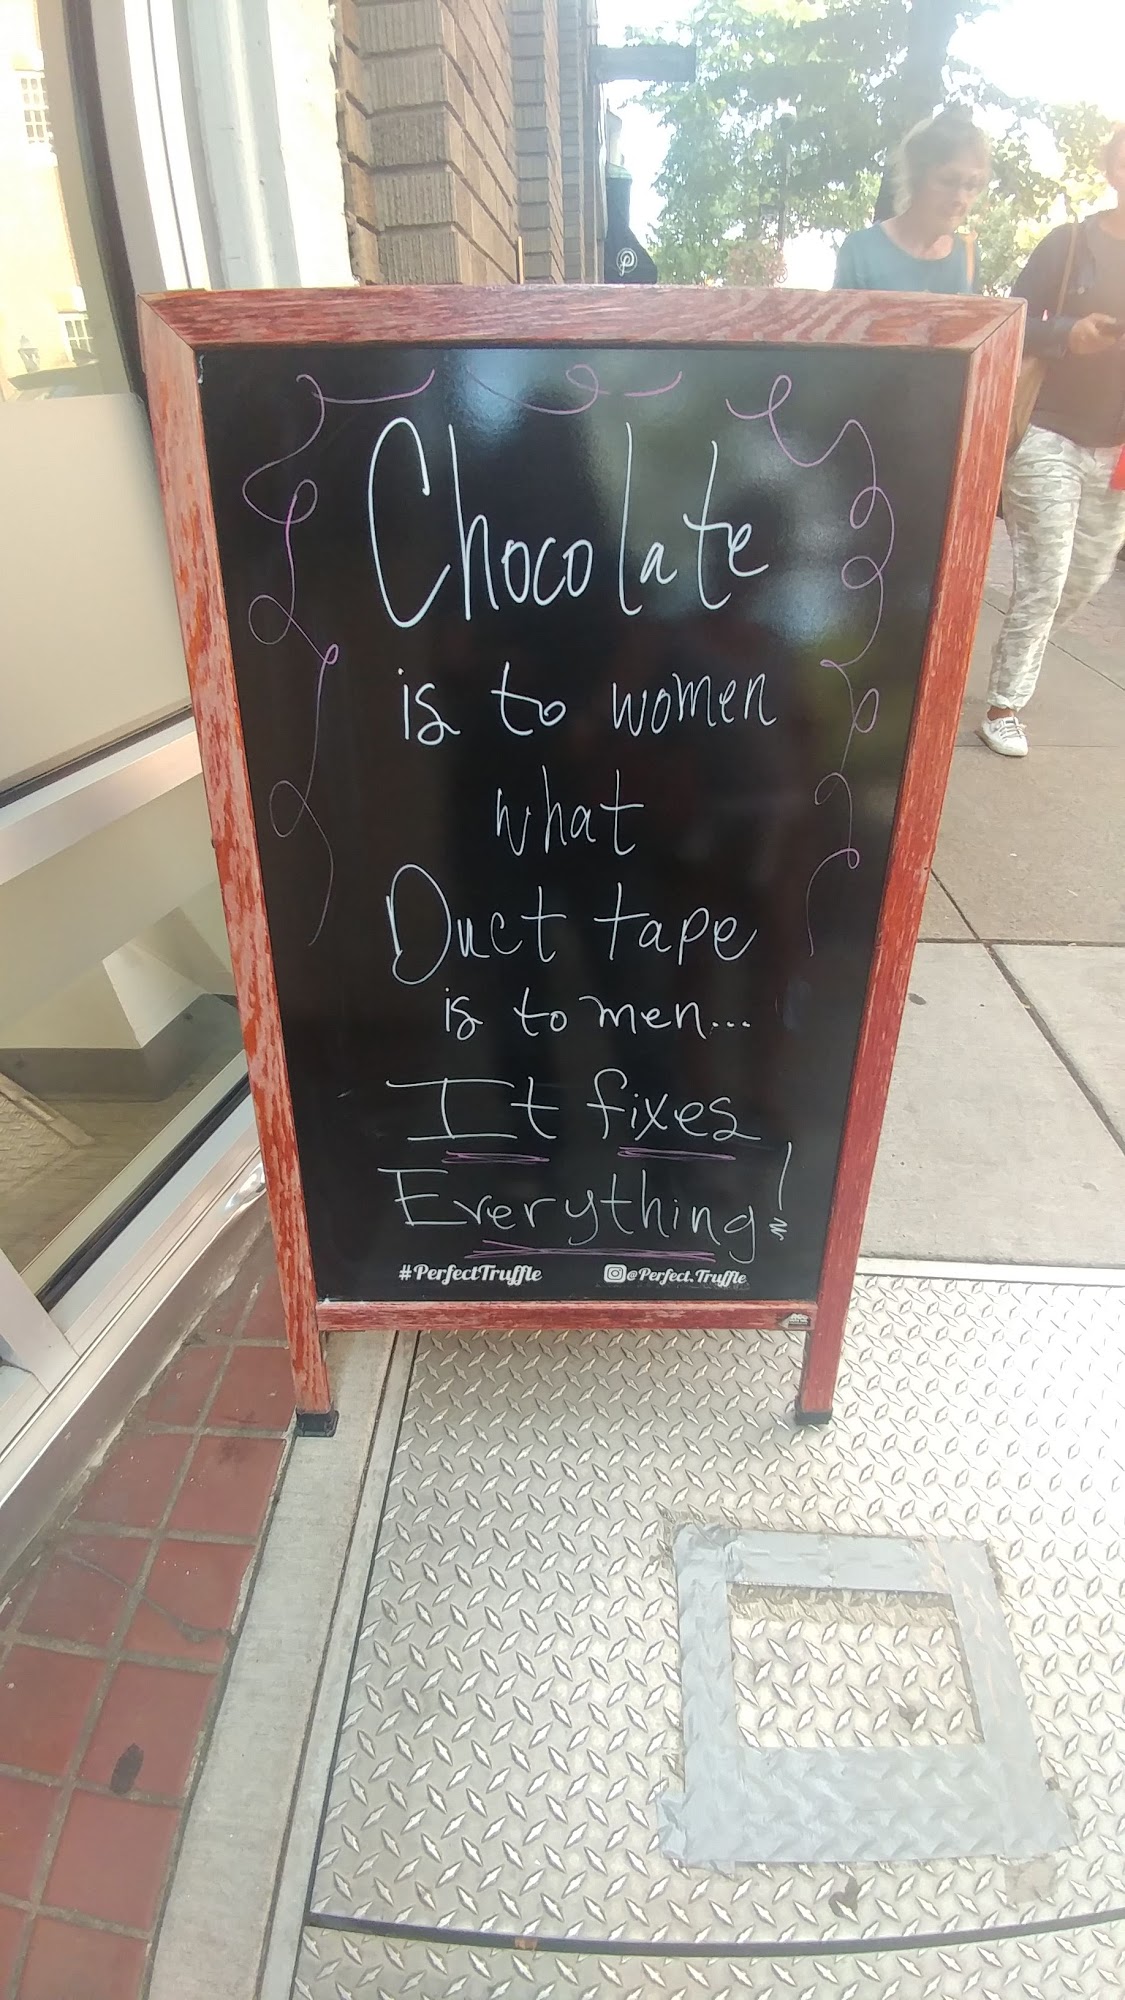 Chocolate
is to women
what
Duct tape
is to men...
It fixes
Everything!
#PerfectTruffle @Perfect.Truffle